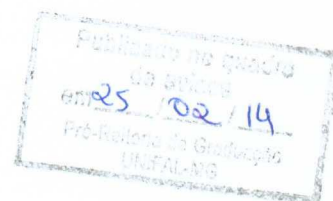 Publicado no quadro
de avisos
em 25 / 02 / 14
Pró-Reitoria de Graduação
UNIFAL-MG